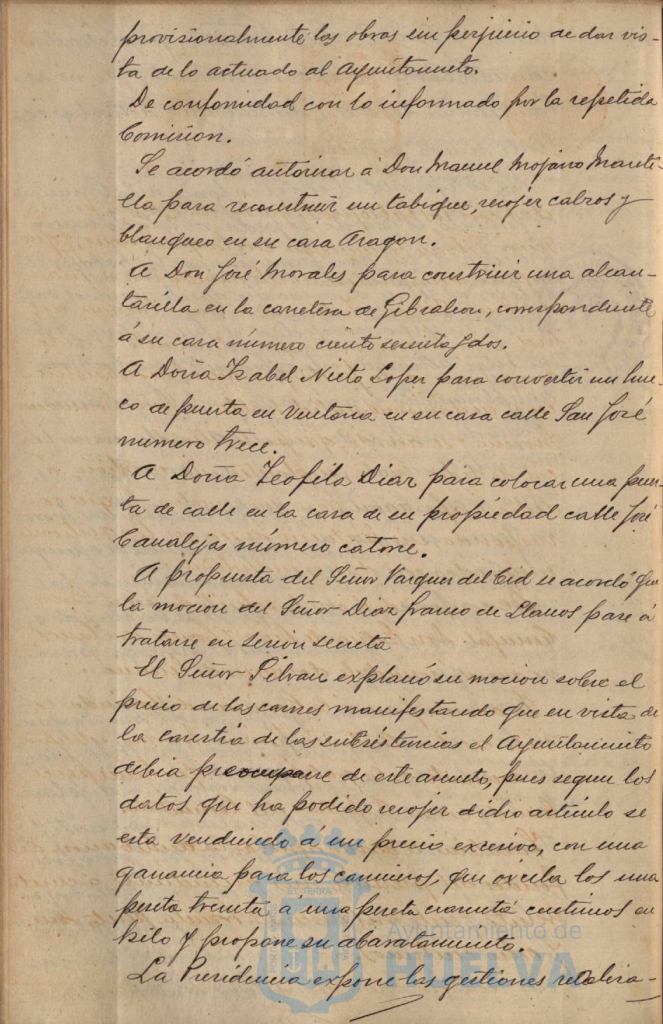 provisionalmente las obras sin perjuicio de dar vis-
ta de lo actuado al Ayuntamiento.
De conformidad con lo informado por la repetida
Comision.
Se acordó autorizar á Don Manuel Mojarro Manti-
lla para reconstruir un tabique, recojer calzos y
blanqueo en su casa Aragon.
A Don José Morales para construir una alcan-
tarilla en la carretera de Gibraleon, correspondiente
á su casa número ciento sesenta y dos.
A Doña Isabel Nieto Lopez para convertir un hue-
co de puerta en ventana en su casa calle San José
numero trece.
A Doña Teofila Diaz para colocar una puer-
ta de calle en la casa de su propiedad calle José
Canalejas número catorce.
A propuesta del Señor Vazquez del Cid se acordó que
la mocion del Señor Diaz Franco de Llanos pase á
tratarse en sesion secreta
El Señor Pelvan explanó su mocion sobre el
precio de las carnes manifestando que en vista de
la carestia de las subsistencias el Ayuntamiento
debia preocuparse de este asunto, pues segun los
datos que ha podido recojer dicho articulo se
esta vendiendo á un precio excesivo, con una
ganancia para los carniceros, que oscila los una
peseta treinta á una peseta cuarenta centimos en
kilo y propone su abaratamiento.
La Presidencia expone las gestiones realiza-
Ayuntamiento de
HUELVA